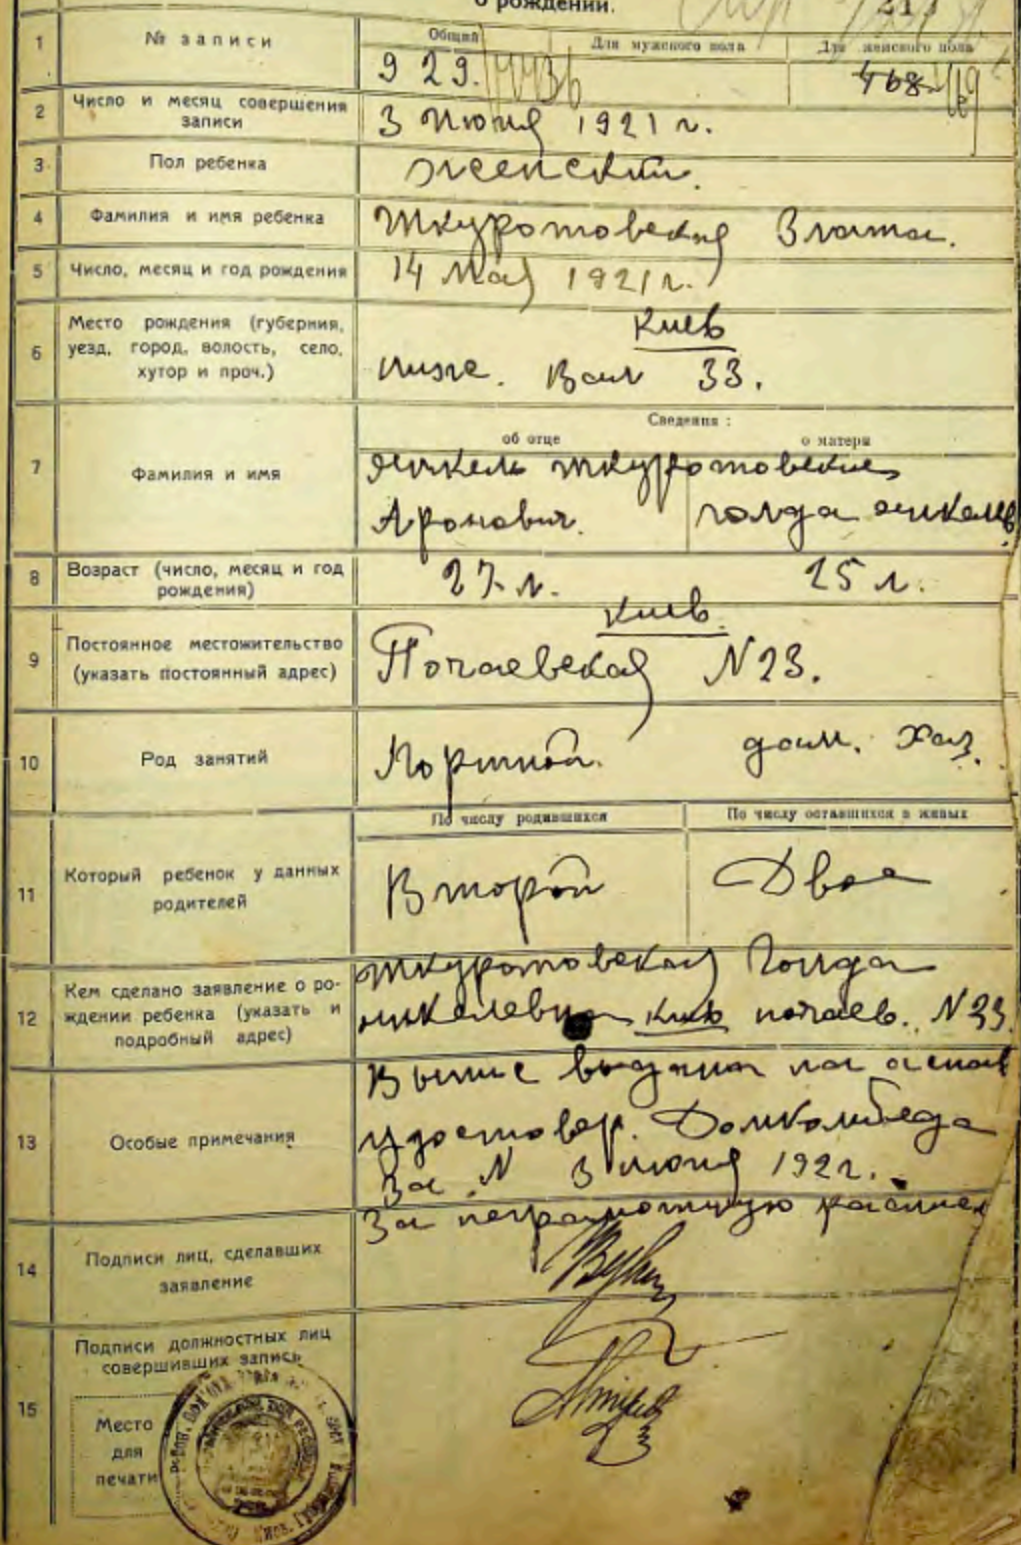 о рождении.
1
№ записи
Общий
Для мужского пола
Для женского пола
929.
468
2
Число и месяц совершения
записи
3 Июня 1921 г.
3
Пол ребенка
женский.
4
Фамилия и имя ребенка
Шкуротовская Злата.
5
Число, месяц и год рождения
14 Мая 1921 г.
6
Место рождения (губерния,
уезд, город, волость, село,
хутор и проч.)
Киев
Ниже. Вал 33.
7
Фамилия и имя
Сведения:
об отце
о матери
Янкель Шкуротовские
Аронович.
Голда Янкелев
8
Возраст (число, месяц и год
рождения)
27 л.
25 л.
9
Постоянное местожительство
(указать постоянный адрес)
Киев.
Почаевская N 23.
10
Род занятий
Портной.
дом. хоз.
11
Который ребенок у данных
родителей
По числу родившихся
По числу оставшихся в живых
Второй
Двое
12
Кем сделано заявление о ро-
ждении ребенка (указать и
подробный адрес)
Шкуротовская Голда
Янкелевна Киев почаев. N 23.
13
Особые примечания
на основ
удостовер. Домкомбеда
За N 3 июня 192 г.
14
Подписи лиц, сделавших
заявление
За неграмотную
15
Подписи должностных лиц
совершивших запись
Место
для
печати